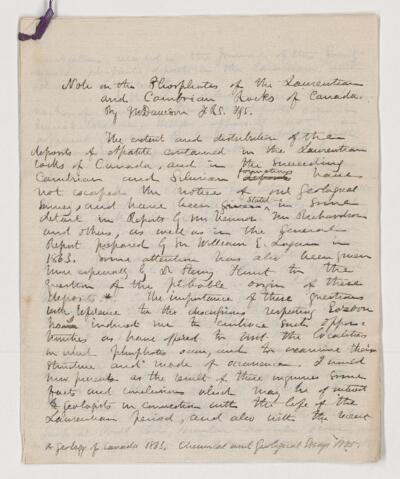 Note on the Phosphates of the Laurentian
and Cambrian Rocks of Canada.
By JWDawson F.R.S. FGS.
The extent and distribution of the
deposits of apatite contained in the Laurentian
rocks of Canada, and in the succeeding
Cambrian and Silurian formations have
not escaped the notice of our Geological
Survey, and have been stated in some
detail in Reports by Mr Vennor Mr Richardson
and others, as well as in the general
Report prepared by Sir William E. Logan in
1863. Some attention has also been given
more especially by Dr Sterry Hunt to the
question of the probable origin of these
deposits.* The importance of these questions
with reference to the discussions respecting Eozoon
induced me to embrace such oppor-
tunities as have offered to visit the localities
in which Phosphates occur, and to examine their
structure and mode of occurrence. I would
now present as the result of these inquiries some
facts and conclusions which may be of interest
to geologists in connection with the life of the
Laurentian period, and also with the recent
* Geology of Canada 1863. Chemical and Geological Essays